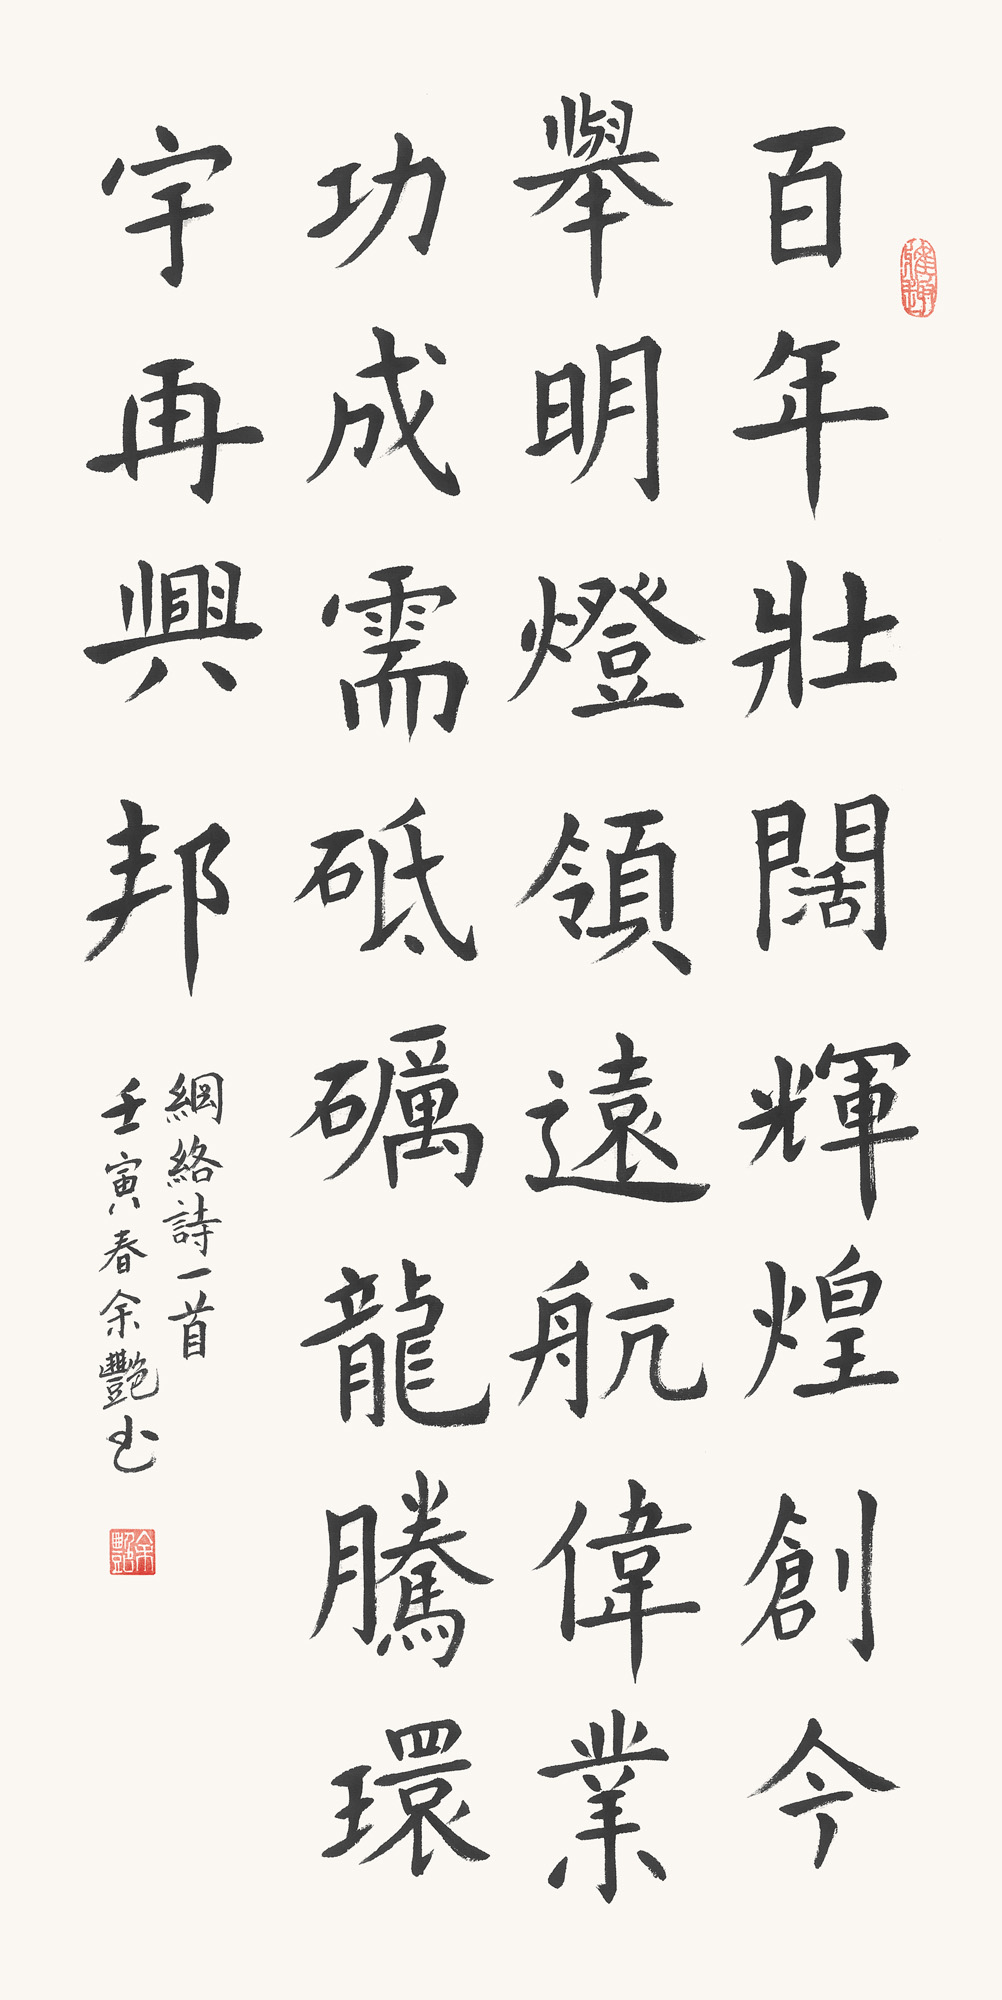 百年壯闊輝煌創今
舉明燈領遠航偉業
功成需砥礪龍騰環
宇再興邦
網絡詩一首
壬寅春余艷书
余艷